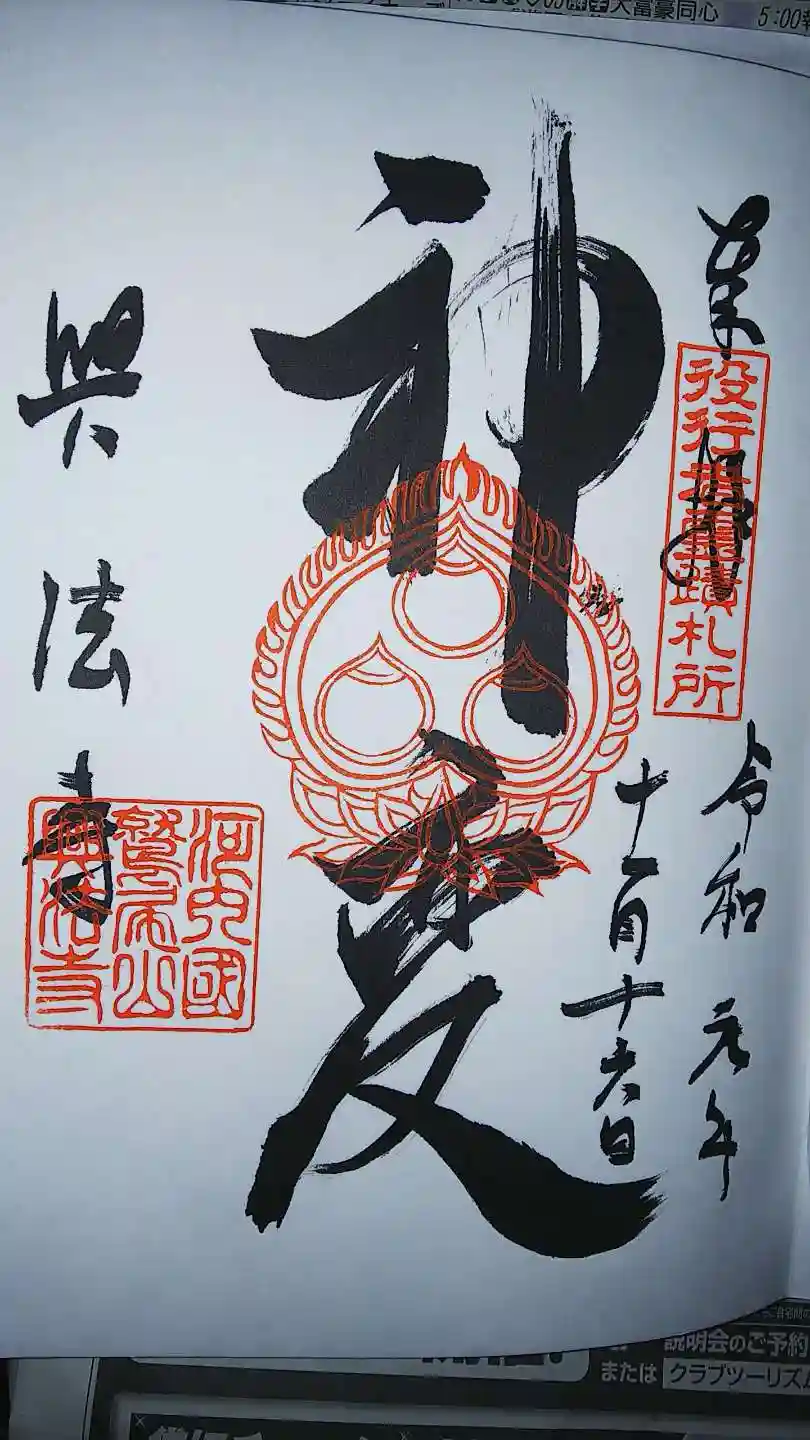 大富豪同心
5:00
奉拝
役行者霊蹟札所
令和 元年
十一月十六日
神変
興法寺
河内國
鷲尾山
興法寺
説明会のご予約
または クラブツーリズム